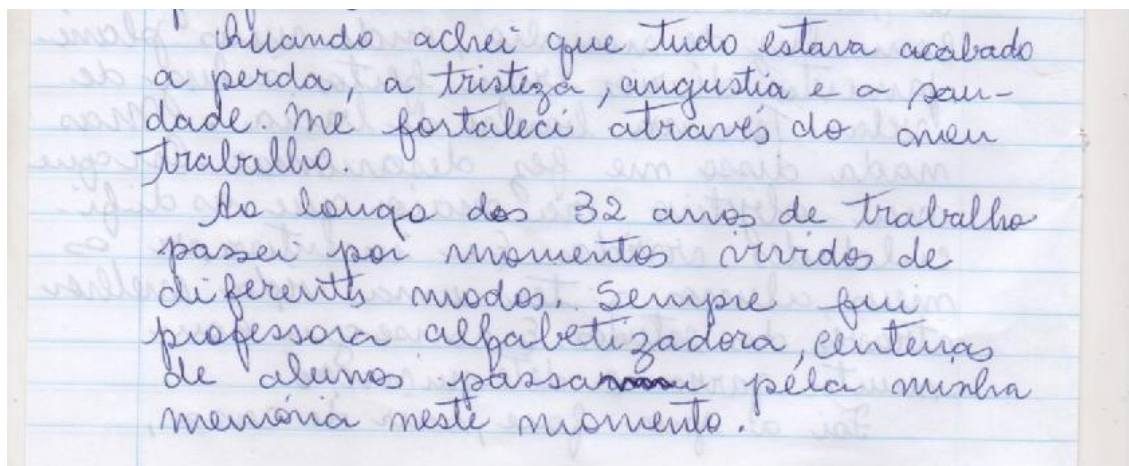 Quando achei que tudo estava acabado
a perda, a tristeza, angustia e a sau-
dade. Me fortaleci através do meu
trabalho.
Ao longo dos 32 anos de trabalho
passei por momentos vividos de
diferents modos. Sempre fui
professora alfabetizadora, centenas
de alunos passam pela minha
memória neste momento.